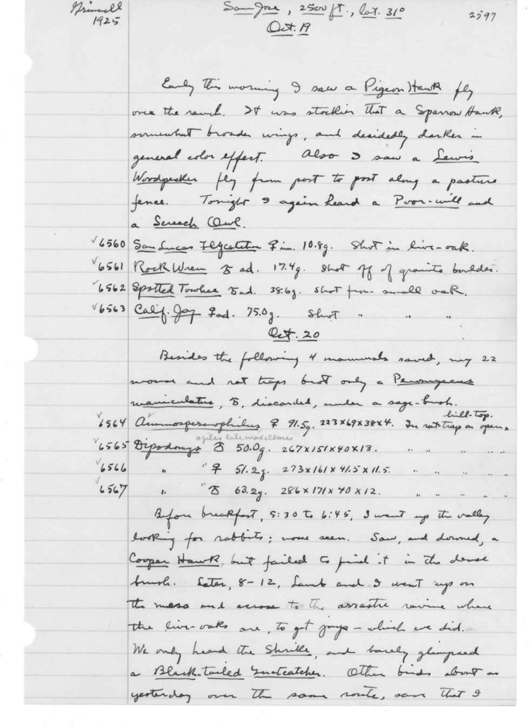 Grinnell
1925
San José, 2500 ft., lat. 31°
2597
Oct. 19
Early this morning I saw a Pigeon Hawk fly
over the ranch. It was stockier that a Sparrow Hawk,
somewhat broader wings, and decidedly darker in
general color effect. Also I saw a Lewis
Woodpecker fly from post to post along a pasture
fence. Tonight I again heard a Poor-will and
a Screech Owl.
✓6560 San Lucas Flycatcher ♀ im. 10.8g. Shot in live-oak.
✓6561 Rock Wren ♂ ad. 17.4g. Shot off of granite boulder.
✓6562 Spotted Towhee ♂ ad. 38.6g. Shot from small oak.
✓6563 Calif. Jay ♀ ad. 75.0g. Shot " " "
Oct. 20
Besides the following 4 mammals saved, my 22
mouse and rat traps brot only a Peromyscus
maniculatus, ♂, discarded, under a sage-bush.
hill-top.
✓6564 Ammospermophilus ♀ 91.5g. 223x69x38x4. In rat trap on open
agilis latimaxillaris
✓6565 Dipodomys ♂ 50.0g. 267x151x40x13. " " " "
✓6566 " " ♀ 51.2g. 273x161x41.5x11.5. " " " "
✓6567 " " ♂ 63.2g. 286x171x40x12. " " " "
Before breakfast, 5:30 to 6:45, I went up the valley
looking for rabbits; none seen. Saw, and downed, a
Cooper Hawk, but failed to find it in the dense
brush. Later, 8-12, Lamb and I went up on
the mesa and across to the arrastre ravine where
the live-oaks are, to get jays - which we did.
We only heard the Shrike, and barely glimpsed
a Black-tailed Gnatcatcher. Other birds about as
yesterday over the same route, save that I